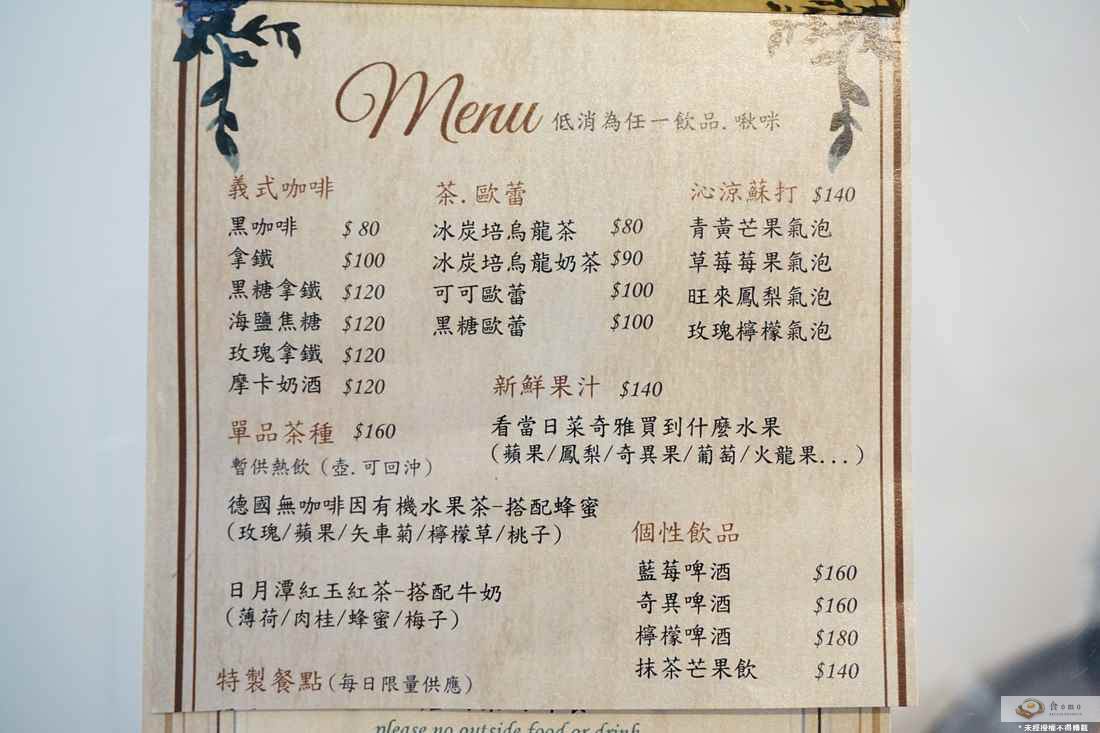 Menu 低消為任一飲品.啾咪
義式咖啡
黑咖啡 $80
拿鐵 $100
黑糖拿鐵 $120
海鹽焦糖 $120
玫瑰拿鐵 $120
摩卡奶酒 $120
茶.歐蕾
冰炭培烏龍茶 $80
冰炭培烏龍奶茶 $90
可可歐蕾 $100
黑糖歐蕾 $100
沁涼蘇打 $140
青黃芒果氣泡
草莓莓果氣泡
旺來鳳梨氣泡
玫瑰檸檬氣泡
新鮮果汁 $140
看當日菜奇雅買到什麼水果
(蘋果/鳳梨/奇異果/葡萄/火龍果...)
單品茶種 $160
暫供熱飲(壺.可回沖)
德國無咖啡因有機水果茶-搭配蜂蜜
(玫瑰/蘋果/矢車菊/檸檬草/桃子)
日月潭紅玉紅茶-搭配牛奶
(薄荷/肉桂/蜂蜜/梅子)
個性飲品
藍莓啤酒 $160
奇異啤酒 $160
檸檬啤酒 $180
抹茶芒果飲 $140
特製餐點(每日限量供應)
please no outside food or drink
食omo
*未經授權不得轉載